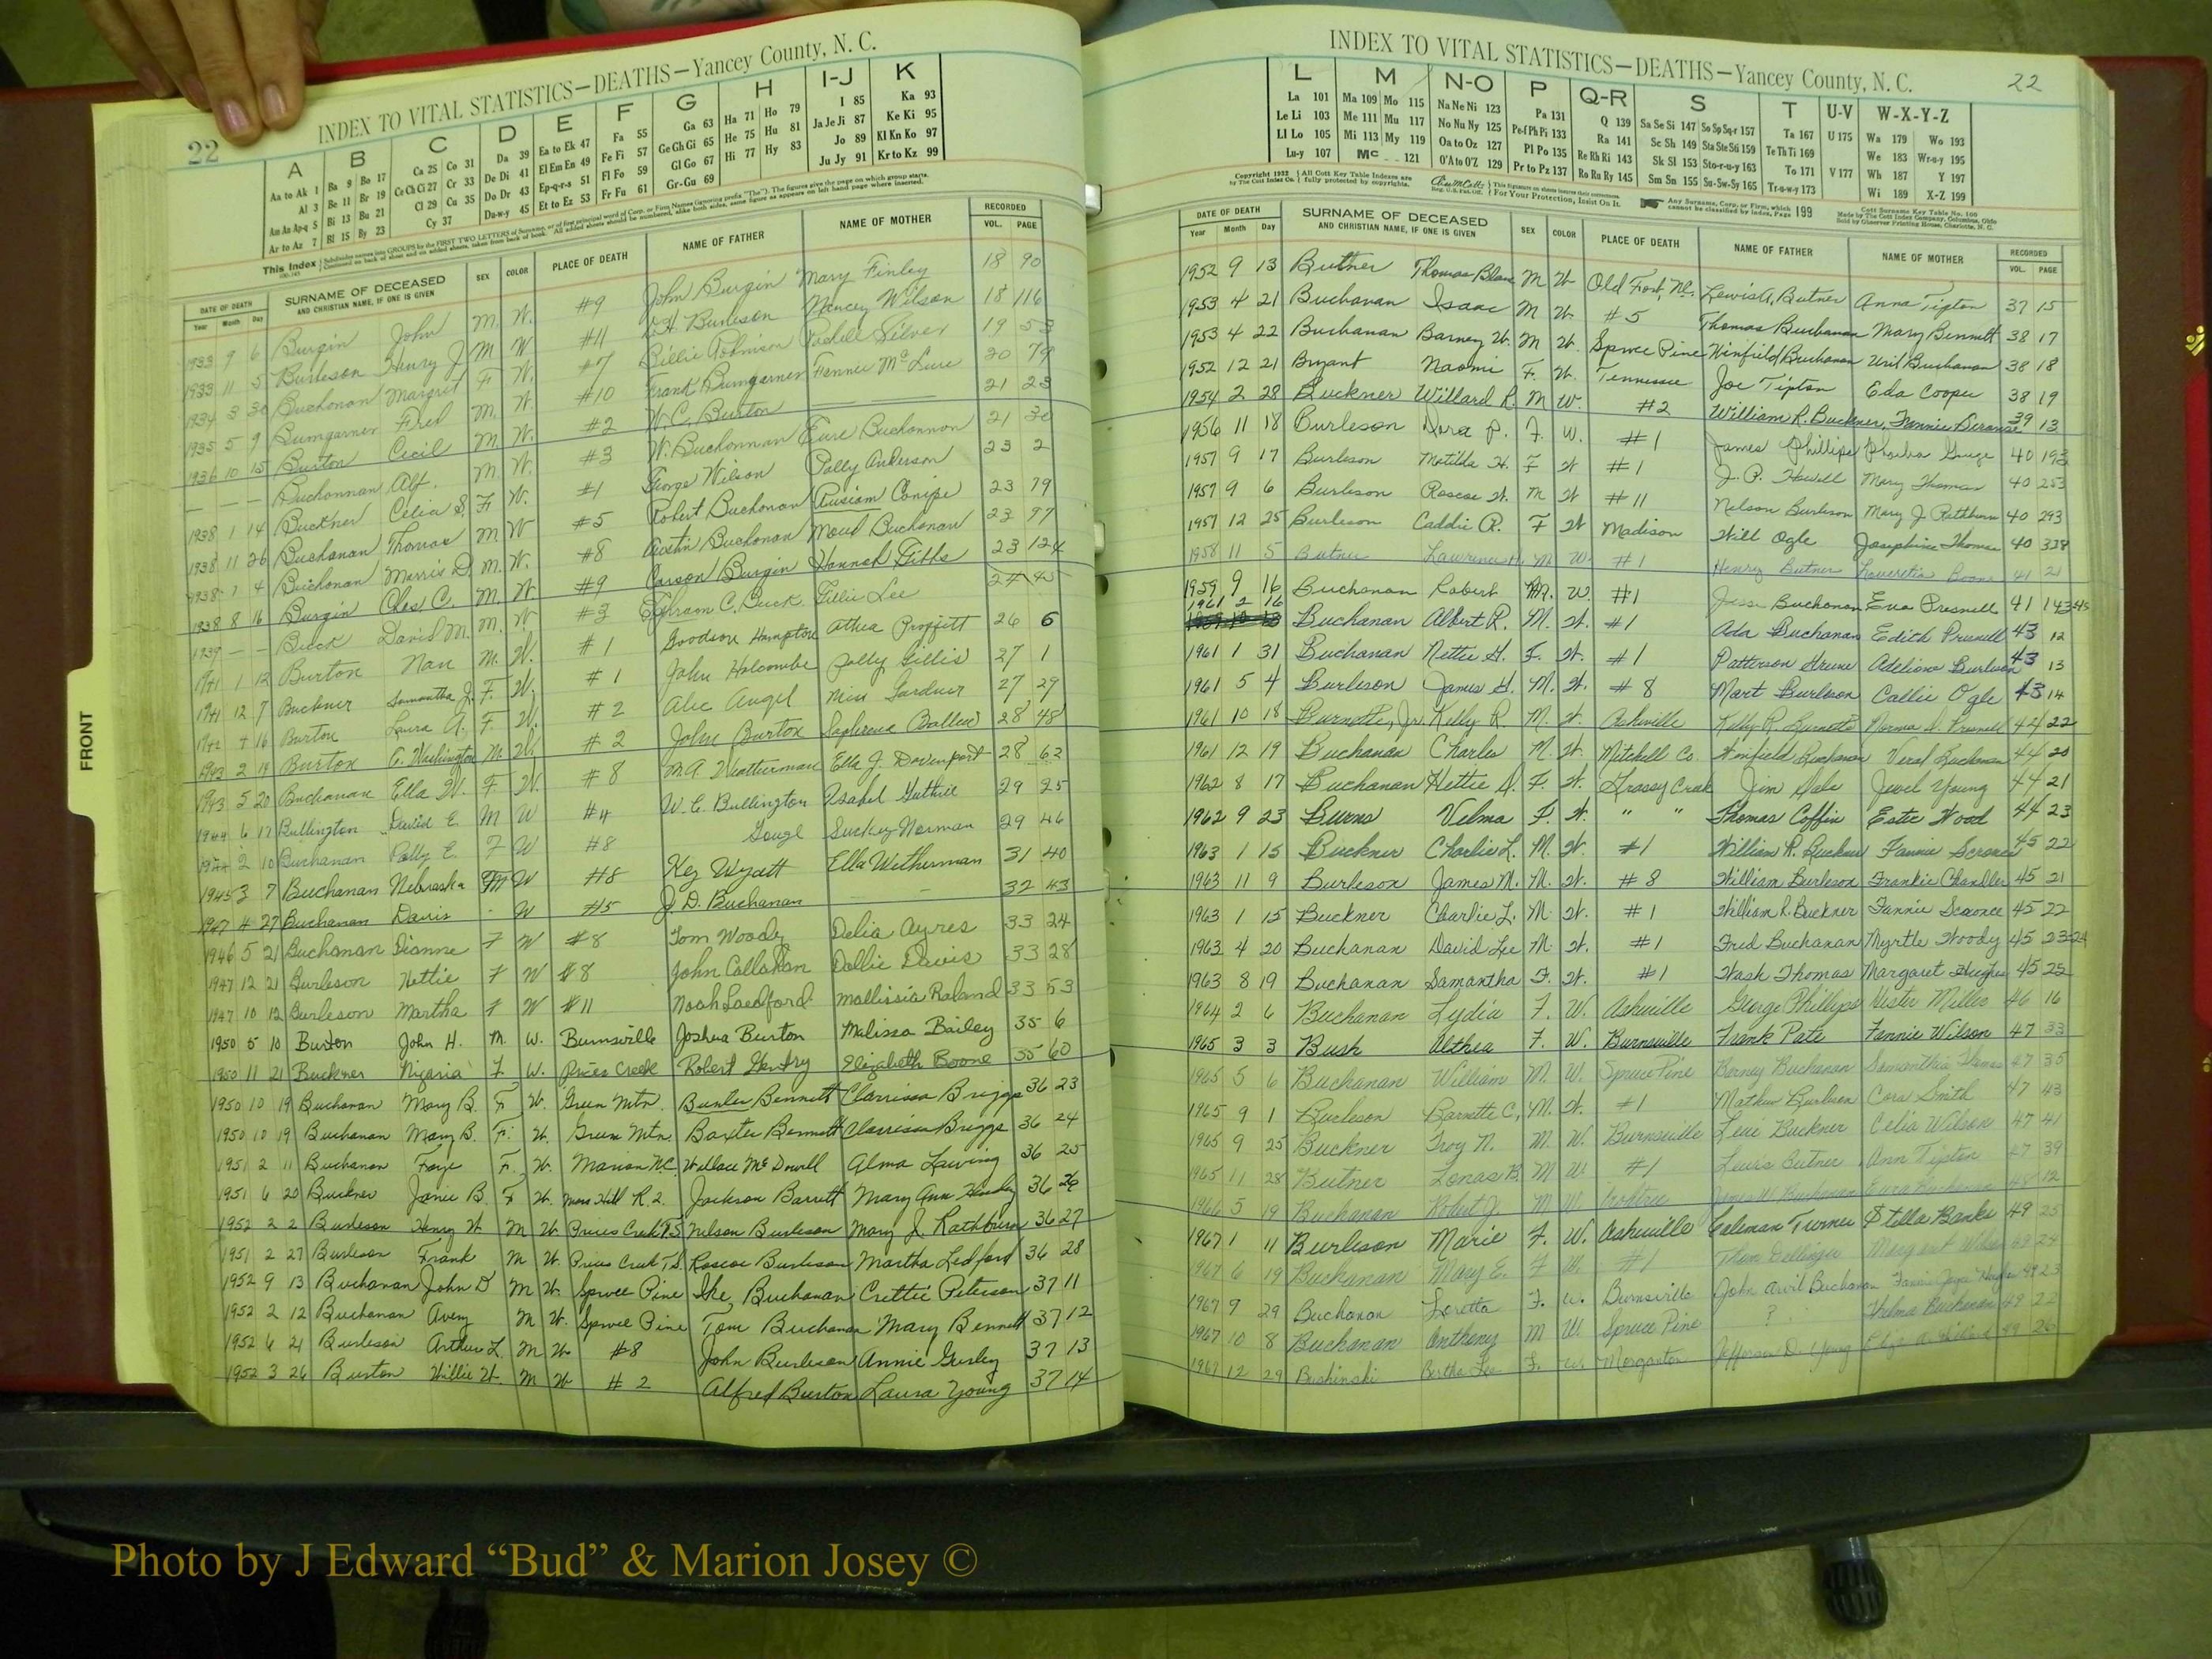 22
INDEX TO VITAL STATISTICS—DEATHS—Yancey County, N. C.
A B C D E F G H I-J K
Aa to Ak 1 Ba 9 Bo 17 Ca 25 Co 31 Da 39 Ea to Ek 47 Fa 55 Ga 63 Ha 71 Ho 79 I 85 Ka 93
Al 3 Be 11 Br 19 Ce Ch Ci 27 Cr 33 De Di 41 El Em En 49 Fe Fi 57 Ge Gh Gi 65 He 75 Hu 81 Ja Je Ji 87 Ke Ki 95
Am An Ap-q 5 Bi 13 Bu 21 Cl 29 Cu 35 Do Dr 43 Ep-q-r-s 51 Fl Fo 59 Gl Go 67 Hi 77 Hy 83 Jo 89 Kl Kn Ko 97
Ar to Az 7 Bl 15 By 23 Cy 37 Du-w-y 45 Et to Ez 53 Fr Fu 61 Gr-Gu 69 Ju Jy 91 Kr to Kz 99
DATE OF DEATH SURNAME OF DECEASED SEX COLOR PLACE OF DEATH NAME OF FATHER NAME OF MOTHER RECORDED
Year Month Day AND CHRISTIAN NAME, IF ONE IS GIVEN VOL. PAGE
1933 9 6 Burgin John M. W. #9 John Burgin Mary Finley 18 90
1933 11 5 Burleson Henry J. M W #11 Burleson Nancey Wilson 18 116
1934 3 30 Buchonan Margret F W. #7 Billie Robinson Silver 19 53
1935 5 9 Bumgarner Fred M. W. #10 Frank Bumgarner Fannie McLure 20 79
1936 10 15 Burton Cecil M W. #2 W. C. Burton 21 23
— — — Buchonnan Alf. M. W. #3 W. Buchonnan Buchonnon 21 30
1938 1 14 Buckner Celia S. F. W. #1 George Wilson Polly Anderson 23 2
1938 11 26 Buchanan Thomas M W #5 Robert Buchonan Conipe 23 79
1938 7 4 Buchonan Morris D. M. W. #8 Austin Buchonan Maud Buchonan 23 97
1938 8 16 Burgin Chas C. M. W. #9 Carson Burgin Hannah Gibbs 23 124
1939 — — Buck David M. M. W #3 Ephraam C. Buck Tillie Lee 24 45
1941 1 12 Burton Nan M. W. #1 Goodson Hampton Athea Proffitt 26 6
1941 12 7 Buckner Samantha J. F. W. #1 John Holcombe Polly Gillis 27 1
16 Burton Laura A. F. W. #2 Alic Angel Miss Gardner 27 29
1943 2 19 Burton G. Washington M. W. #2 John Burton 28 48
1943 5 20 Buchanan Ella W. F W. #8 M.A. Weatherman Ella J. Davenport 28 62
1944 6 17 Bullington David E. M W #4 W. C. Bullington Isabel Guthrie 29 25
1944 2 10 Buchanan Polly E. F W #8 Gouge Suckey Norman 29 46
1945 3 7 Buchanan Nebraska W #8 Key Wyatt Ella Witherman 31 40
1947 4 27 Buchanan Davis - W #5 J. D. Buchanan — 32 43
1946 5 21 Buchanan Dianne F W #8 Tom Woody Delia Ayres 33 24
1947 12 21 Burleson Hettie F W #8 John Callahan Dollie Davis 33 28
1947 10 12 Burleson Martha F W #11 Noah Ledford Mallissia Roland 33 53
1950 5 10 Burton John H. M. W. Burnsville Joshua Burton Melissa Bailey 35 6
1950 11 21 Buckner Nigaria F. W. Prices Creek Robert Gentry Elizabeth Boone 35 60
1950 10 19 Buchanan Mary B. F W. Green Mtn. Bennett Clarrissa Briggs 36 23
1950 10 19 Buchanan Mary B. F. W. Green Mtn. Baxter Bennett Clarrissa Briggs 36 24
1951 2 11 Buchanan Faye F. W. Marion N.C. Wallace McDowell Alma Lawing 36 25
1951 6 20 Buckner Janie B. F W. Mars Hill R 2. Jackson Barrett Mary Ann Hensley 36 26
1952 2 2 Burleson Henry W. M W. Prices Creek T.S. Nelson Burleson Mary J. Rathburn 36 27
1951 2 27 Burleson Frank M W. Prices Creek T.S. Roscoe Burleson Martha Ledford 36 28
1952 9 13 Buchanan John D M W. Spruce Pine Ike Buchanan Crettie Peterson 37 11
1952 2 12 Buchanan Avery M W. Spruce Pine Tom Buchanan Mary Bennett 37 12
1952 6 21 Burleson Arthur L. M W. #8 John Burleson Annie Gurley 37 13
1952 3 26 Burton Willie W. M W #2 Alfred Burton Laura Young 37 14
FRONT
INDEX TO VITAL STATISTICS—DEATHS—Yancey County, N. C.
22
L M N-O P Q-R S T U-V W-X-Y-Z
La 101 Ma 109 Mo 115 Na Ne Ni 123 Pa 131 Q 139 Sa Se Si 147 So Sp Sq-r 157 Ta 167 U 175 Wa 179 Wo 193
Le Li 103 Me 111 Mu 117 No Nu Ny 125 Pe-f Ph Pi 133 Ra 141 Sc Sh 149 Sta Ste Sti 159 Te Th Ti 169 We 183 Wr-u-y 195
Ll Lo 105 Mi 113 My 119 Oa to Oz 127 Pl Po 135 Re Rh Ri 143 Sk Sl 153 Sto-r-u-y 163 To 171 V 177 Wh 187 Y 197
Lu-y 107 Mc 121 O'A to O'Z 129 Pr to Pz 137 Ro Ru Ry 145 Sm Sn 155 Su-Sw-Sy 165 Tr-u-w-y 173 Wi 189 X-Z 199
DATE OF DEATH SURNAME OF DECEASED SEX COLOR PLACE OF DEATH NAME OF FATHER NAME OF MOTHER RECORDED
Year Month Day AND CHRISTIAN NAME, IF ONE IS GIVEN VOL. PAGE
1952 9 13 Butner Thomas M W Old Fort, N.C. Lewis A. Butner Anna Tipton 37 15
1953 4 21 Buchanan Isaac M W. #5 Thomas Buchanan Mary Bennett 38 17
1953 4 22 Buchanan Barney W. M W. Spruce Pine Winfield Buchanan Buchanan 38 18
1952 12 21 Bryant Naomi F. W. Tennessee Joe Tipton Eda Cooper 38 19
1954 2 28 Buckner Willard R. M W. #2 William R. Buckner Fannie 39 13
1956 11 18 Burleson Dora P. F. W. #1 James Phillips Phoeba Gouge 40 193
1957 9 17 Burleson Matilda H. F W #1 J. P. Howell Mary Thomas 40 253
1957 9 6 Burleson Roscoe W. M W #11 Nelson Burleson Mary J Rathburn 40 293
1957 12 25 Burleson Caddie R. F W Madison Will Ogle Josephine Thomas 40 329
1958 11 5 Butner Lawrence H. M. W. #1 Henry Butner Loucretia Boone 41 21
1959 9 16 Buchanan Robert M. W. #1 Jesse Buchanan Eva Presnell 41 143
1961 2 16 Buchanan Albert R. M. W. #1 Ada Buchanan Edith Presnell 43 12
1961 1 31 Buchanan Nettie H. F. W. #1 Patterson Adeline Burleson 43 13
1961 5 4 Burleson James H. M. W. #8 Mart Burleson Callie Ogle 43 14
1961 10 18 Burnette, Jr. Kelly R M. W. Asheville Kelly R. Burnette Norma Presnell 44 22
1961 12 19 Buchanan Charles M. W. Mitchell Co. Winfield Buchanan Buchanan 44 20
1962 8 17 Buchanan Hettie D. F. W. Grassy Creek Jim Dale Jewel Young 44 21
1962 9 23 Burns Velma F. W. " " Thomas Coffin Estie Wood 44 23
1963 1 15 Buckner Charlie L. M. W. #1 William R. Buckner Fannie 45 22
1963 11 9 Burleson James M. M. W. #8 William Burleson Frankie Chandler 45 21
1963 1 15 Buckner Charlie L. M. W. #1 William R. Buckner Fannie 45 22
1963 4 20 Buchanan David Lee M. W. #1 Fred Buchanan Myrtle Woody 45 23-24
1963 8 19 Buchanan Samantha F. W. #1 Wash Thomas Margaret Hughes 45 25
1964 2 6 Buchanan Lydia F. W. Asheville George Phillips Hester Miller 46 16
1965 3 3 Bush Althea F. W. Burnsville Frank Pate Fannie Wilson 47 33
1965 5 6 Buchanan William M. W. Spruce Pine Berney Buchanan Samanthia 47 35
1965 9 1 Burleson Barnette C. M. W. #1 Burleson Cora Smith 47 43
1965 9 25 Buckner Troy N. M. W. Burnsville Buckner Celia Wilson 47 41
1965 11 28 Butner Lonas B. M W. #1 Lewis Butner Ann Tipton 47 39
1966 5 19 Buchanan Robert J. M W. Crabtree Buchanan 48 12
1967 1 11 Burleson Marie F. W. Asheville Coleman Turner Stella Banks 49 25
1967 6 19 Buchanan Mary E. F W. #1 Dellinger Margaret 49 24
1967 9 29 Buchanan Loretta F. W. Burnsville John Arvil Buchanan 49 23
1967 10 8 Buchanan Anthony M W. Spruce Pine ? Thelma Buchanan 49 22
1967 12 29 Bushinski Bertha Lee F. W. Morganton Jefferson D. Young 49 26
Photo by J Edward “Bud” & Marion Josey ©